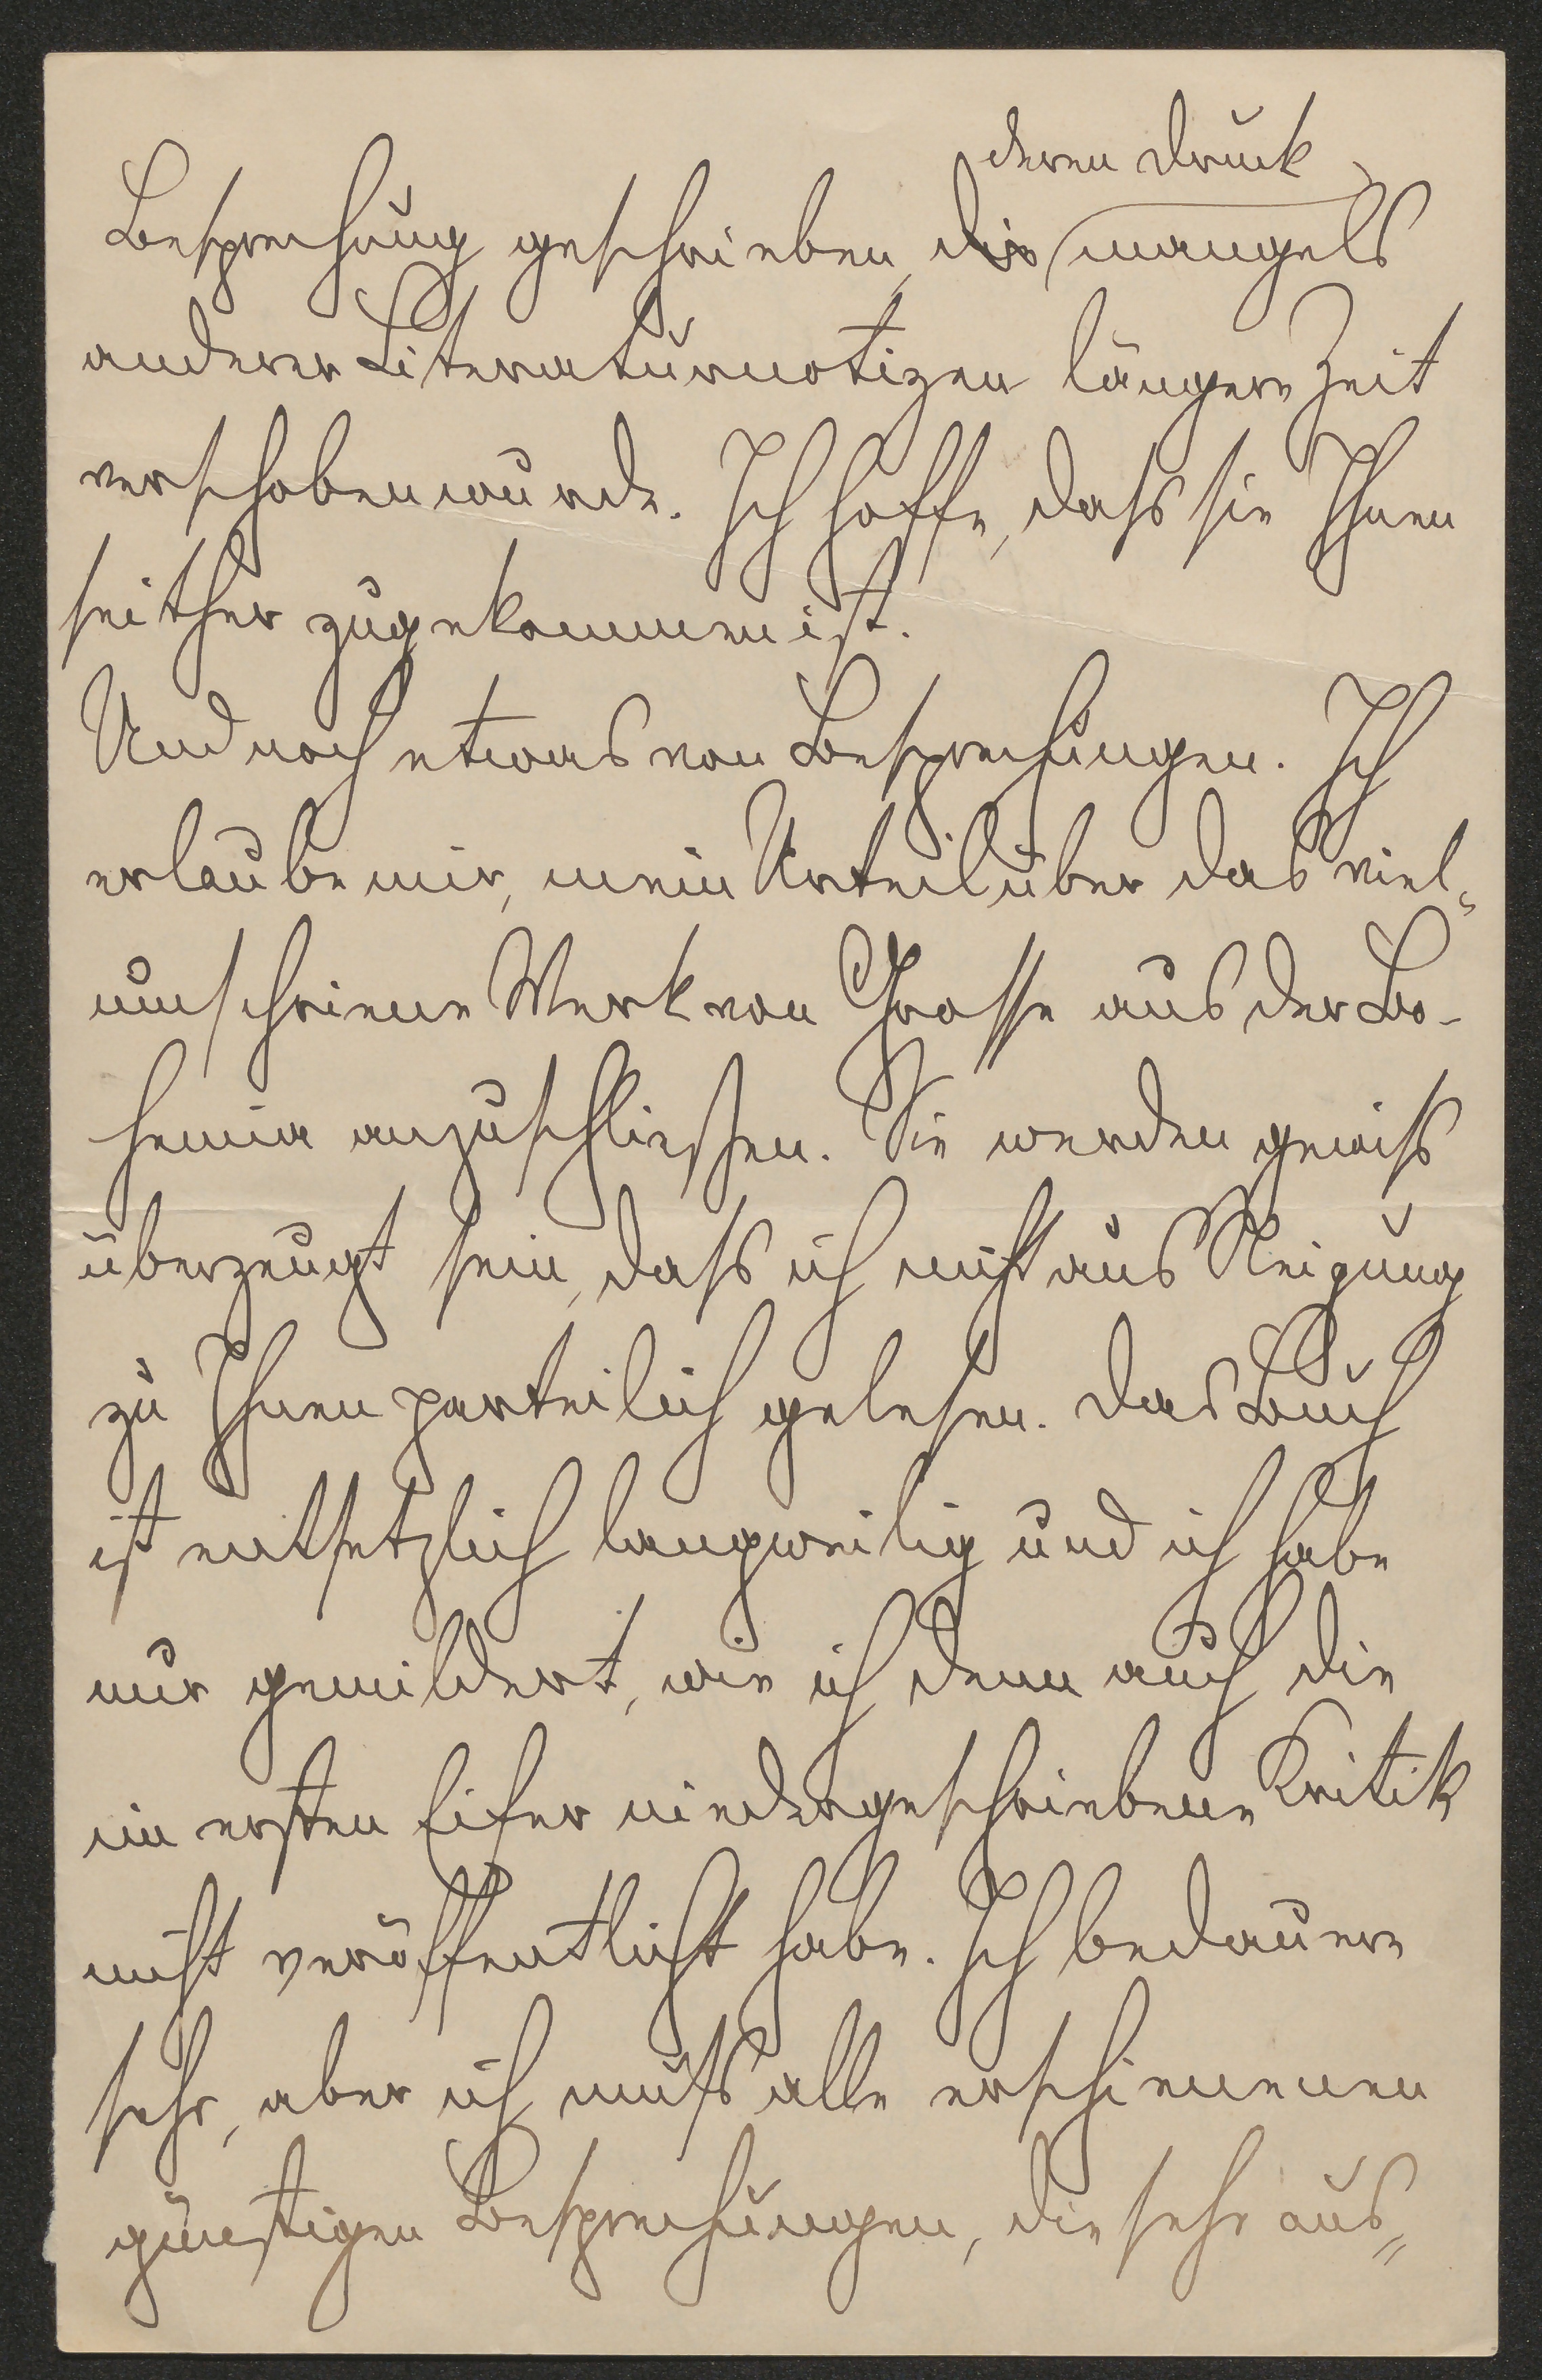 deren Druck
Besprechung geschrieben, die mangels
anderer Literaturnotizen längere Zeit
verschoben wurde. Ich hoffe, dass sie Ihnen
seither zugekommen ist.
Und noch etwas von Besprechungen. Ich
erlaube mir, mein Urteil über das viel-
umschriene Werk von Grosse aus der Bo-
hemia anzuschließen. Sie werden gewiss
überzeugt sein, dass ich nicht aus Neigung
zu Ihnen parteilich gelesen. Das Buch
ist entsetzlich langweilig und ich habe
nur gemildert, wie ich denn auch die
im ersten Eifer niedergeschriebene Kritik
nicht veröffentlicht habe. Ich bedauere
sehr, aber ich muss alle erschienenen
günstigen Besprechungen, die sehr aus-